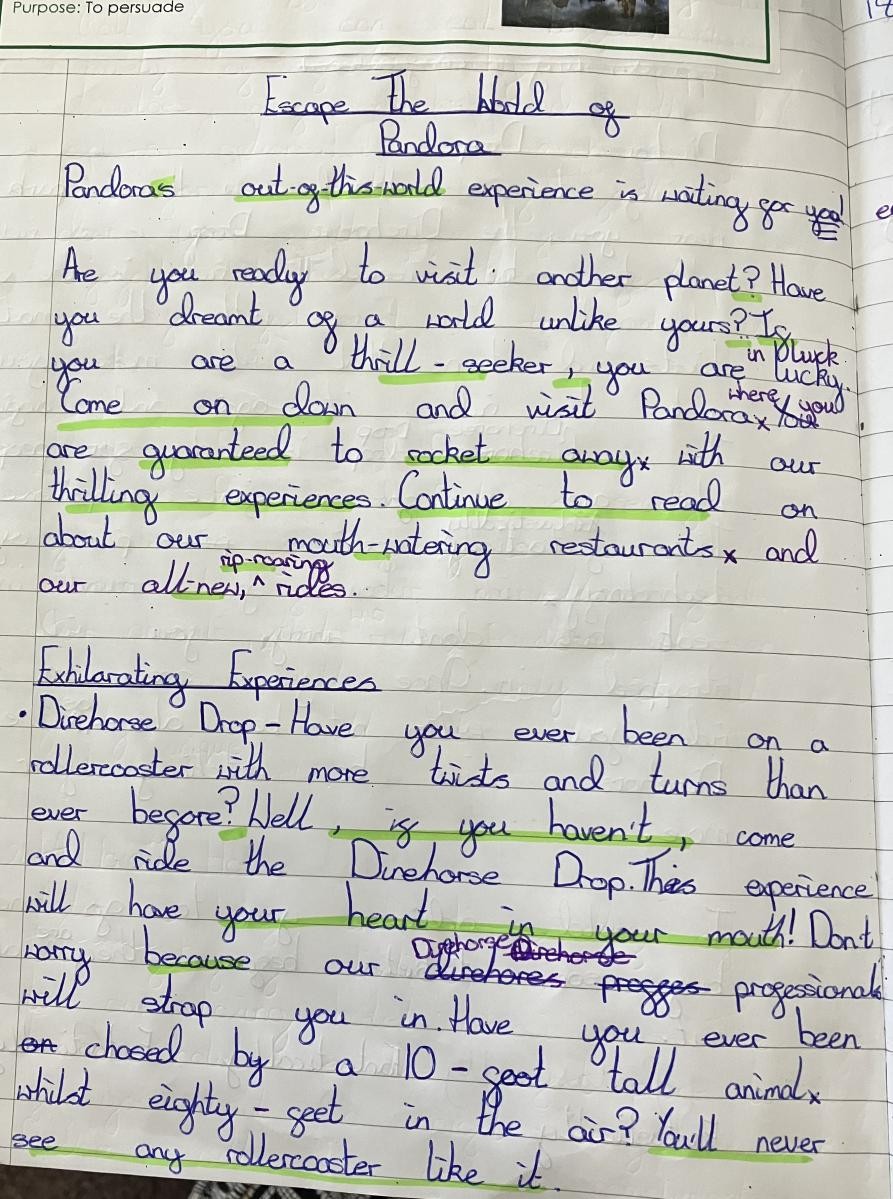 Purpose: To persuade
Escape The World of
Pandora
Pandoras out-of-this-world experience is waiting for you!
Are you ready to visit another planet? Have
you dreamt of a world unlike yours? If
you are a thrill-seeker, you are in pluck lucky.
Come on down and visit Pandora where you
are guaranteed to rocket away with our
thrilling experiences. Continue to read on
about our mouth-watering restaurants and
our all-new, rip-roaring rides.
Exhilarating Experiences
• Direhorse Drop - Have you ever been on a
rollercoaster with more twists and turns than
ever before? Well, if you haven't, come
and ride the Direhorse Drop. This experience
will have your heart in your mouth! Don't
worry because our Direhorse professionals
will strap you in. Have you ever been
chosed by a 10-foot tall animal
whilst eighty-feet in the air? You'll never
see any rollercoaster like it.